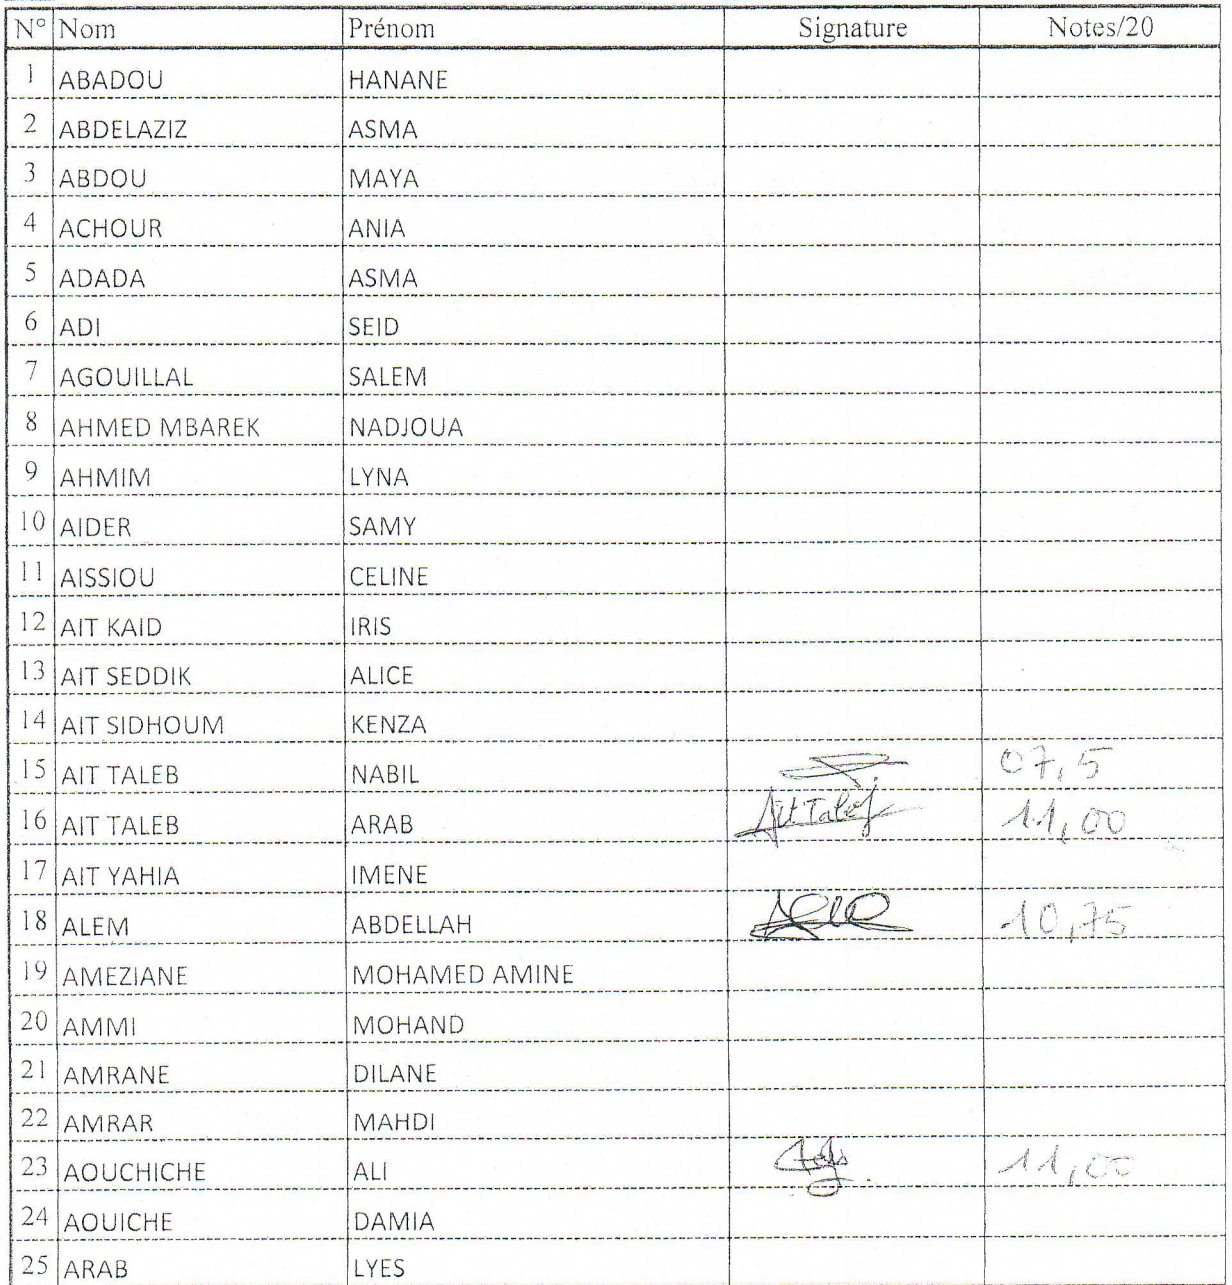 N° Nom Prénom Signature Notes/20
1 ABADOU HANANE
2 ABDELAZIZ ASMA
3 ABDOU MAYA
4 ACHOUR ANIA
5 ADADA ASMA
6 ADI SEID
7 AGOUILLAL SALEM
8 AHMED MBAREK NADJOUA
9 AHMIM LYNA
10 AIDER SAMY
11 AISSIOU CELINE
12 AIT KAID IRIS
13 AIT SEDDIK ALICE
14 AIT SIDHOUM KENZA
15 AIT TALEB NABIL 07,5
16 AIT TALEB ARAB Ait Taleb 11,00
17 AIT YAHIA IMENE
18 ALEM ABDELLAH 10,75
19 AMEZIANE MOHAMED AMINE
20 AMMI MOHAND
21 AMRANE DILANE
22 AMRAR MAHDI
23 AOUCHICHE ALI 11,00
24 AOUICHE DAMIA
25 ARAB LYES